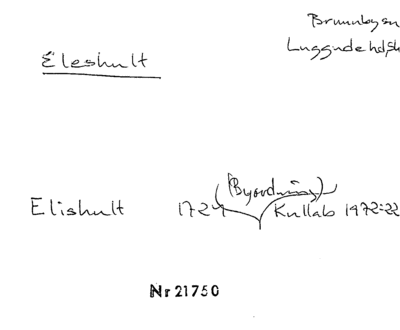 Brunnby sn
Luggude hd, Sk
Eleshult
(Byordning)
Elishult 1724 Kullab 1972:22
Nr 21750